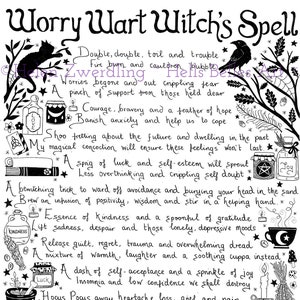 Worry Wart Witch's Spell
Double, double, toil and trouble
Fire burn and cauldron bubble
Zwerdling Hells Be
Worries begone and out crippling fear
A pinch of support from those held dear
Courage, bravery and a feather of hope
Banish anxiety and help us to cope
Shoo fretting about the future and dwelling in the past
My magical connection, will ensure these feelings won't last
A sprig of luck and self-esteem will sprout
Less overthinking and crippling self doubt
A bewitching trick to ward off avoidance and burying your head in the sand
Brew an infusion of positivity, wisdom and stir in a helping hand.
Essence of Kindness and a spoonful of gratitude
at sadness, despair and those lonely, depressive moods
KINDNESS
Release guilt, regret, trauma and overwhelming dread
mixture of warmth, laughter and a soothing cuppa instead
A dash of self-acceptance and a sprinkle of joy
Insomnia and low confidence we shall destroy
Hocus Pocus away heartache, loss, grief and